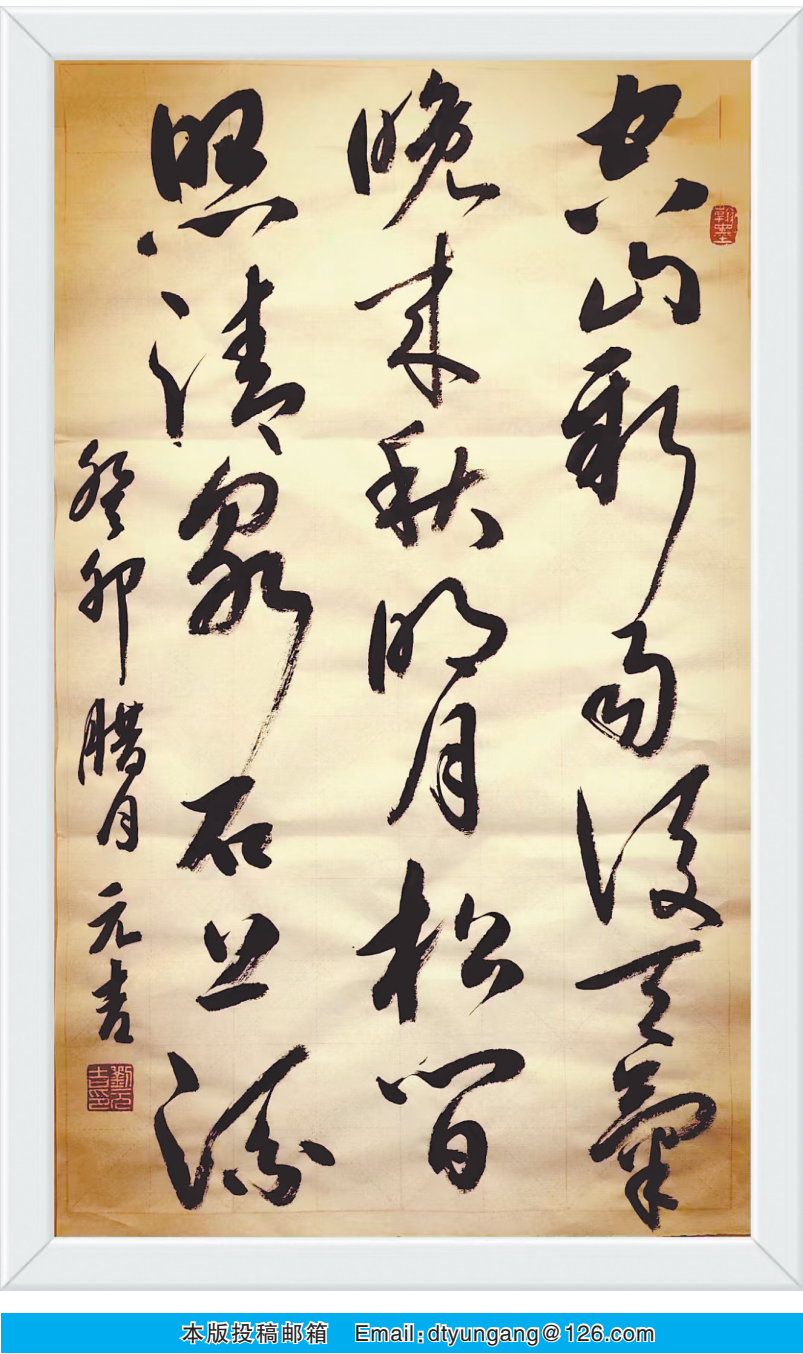 空山新雨後天氣
晚来秋明月松間
照清泉石上流
癸卯腊月元吉
翰墨
劉元吉印
本版投稿邮箱 Email:dtyungang@126.com